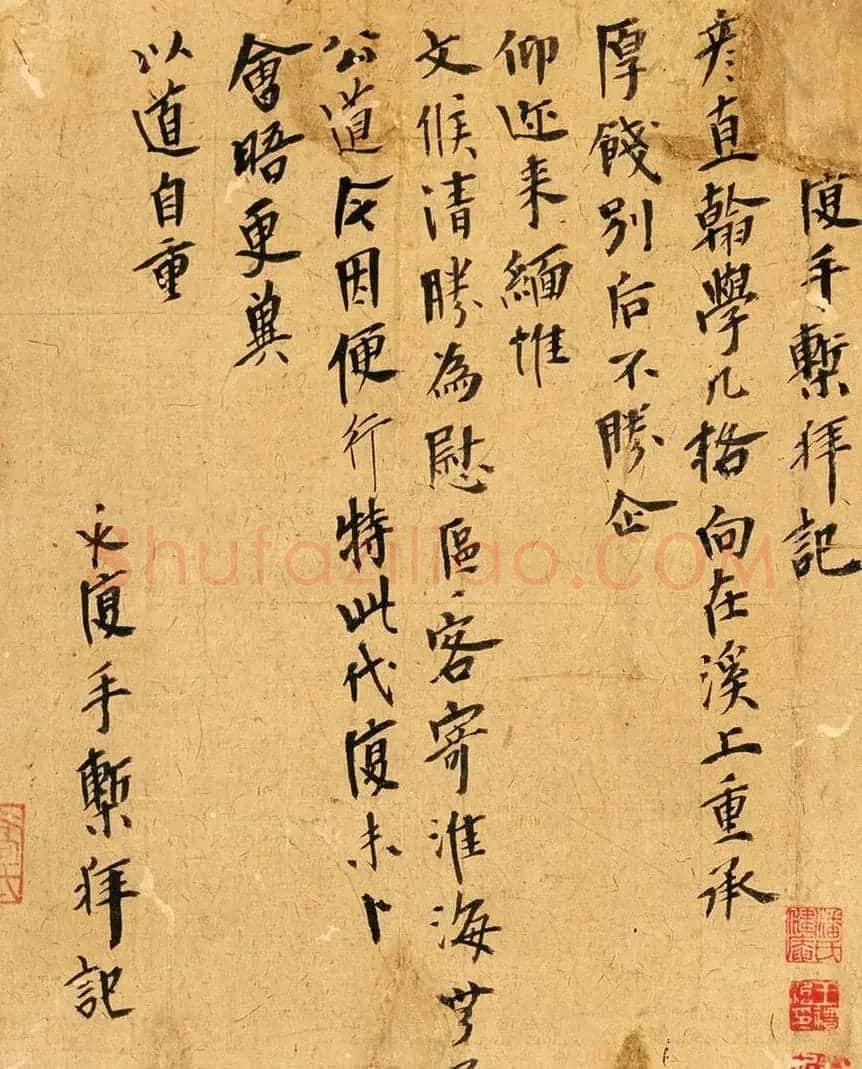 復手槧拜記
彦直翰學几格向在溪上重承
厚餞別后不勝企
仰迩来緬惟
文候清勝為慰區〻客寄淮海無
公道今因便行特此代復未卜
會晤更冀
以道自重
復手槧拜記
Shufaziliao.COM